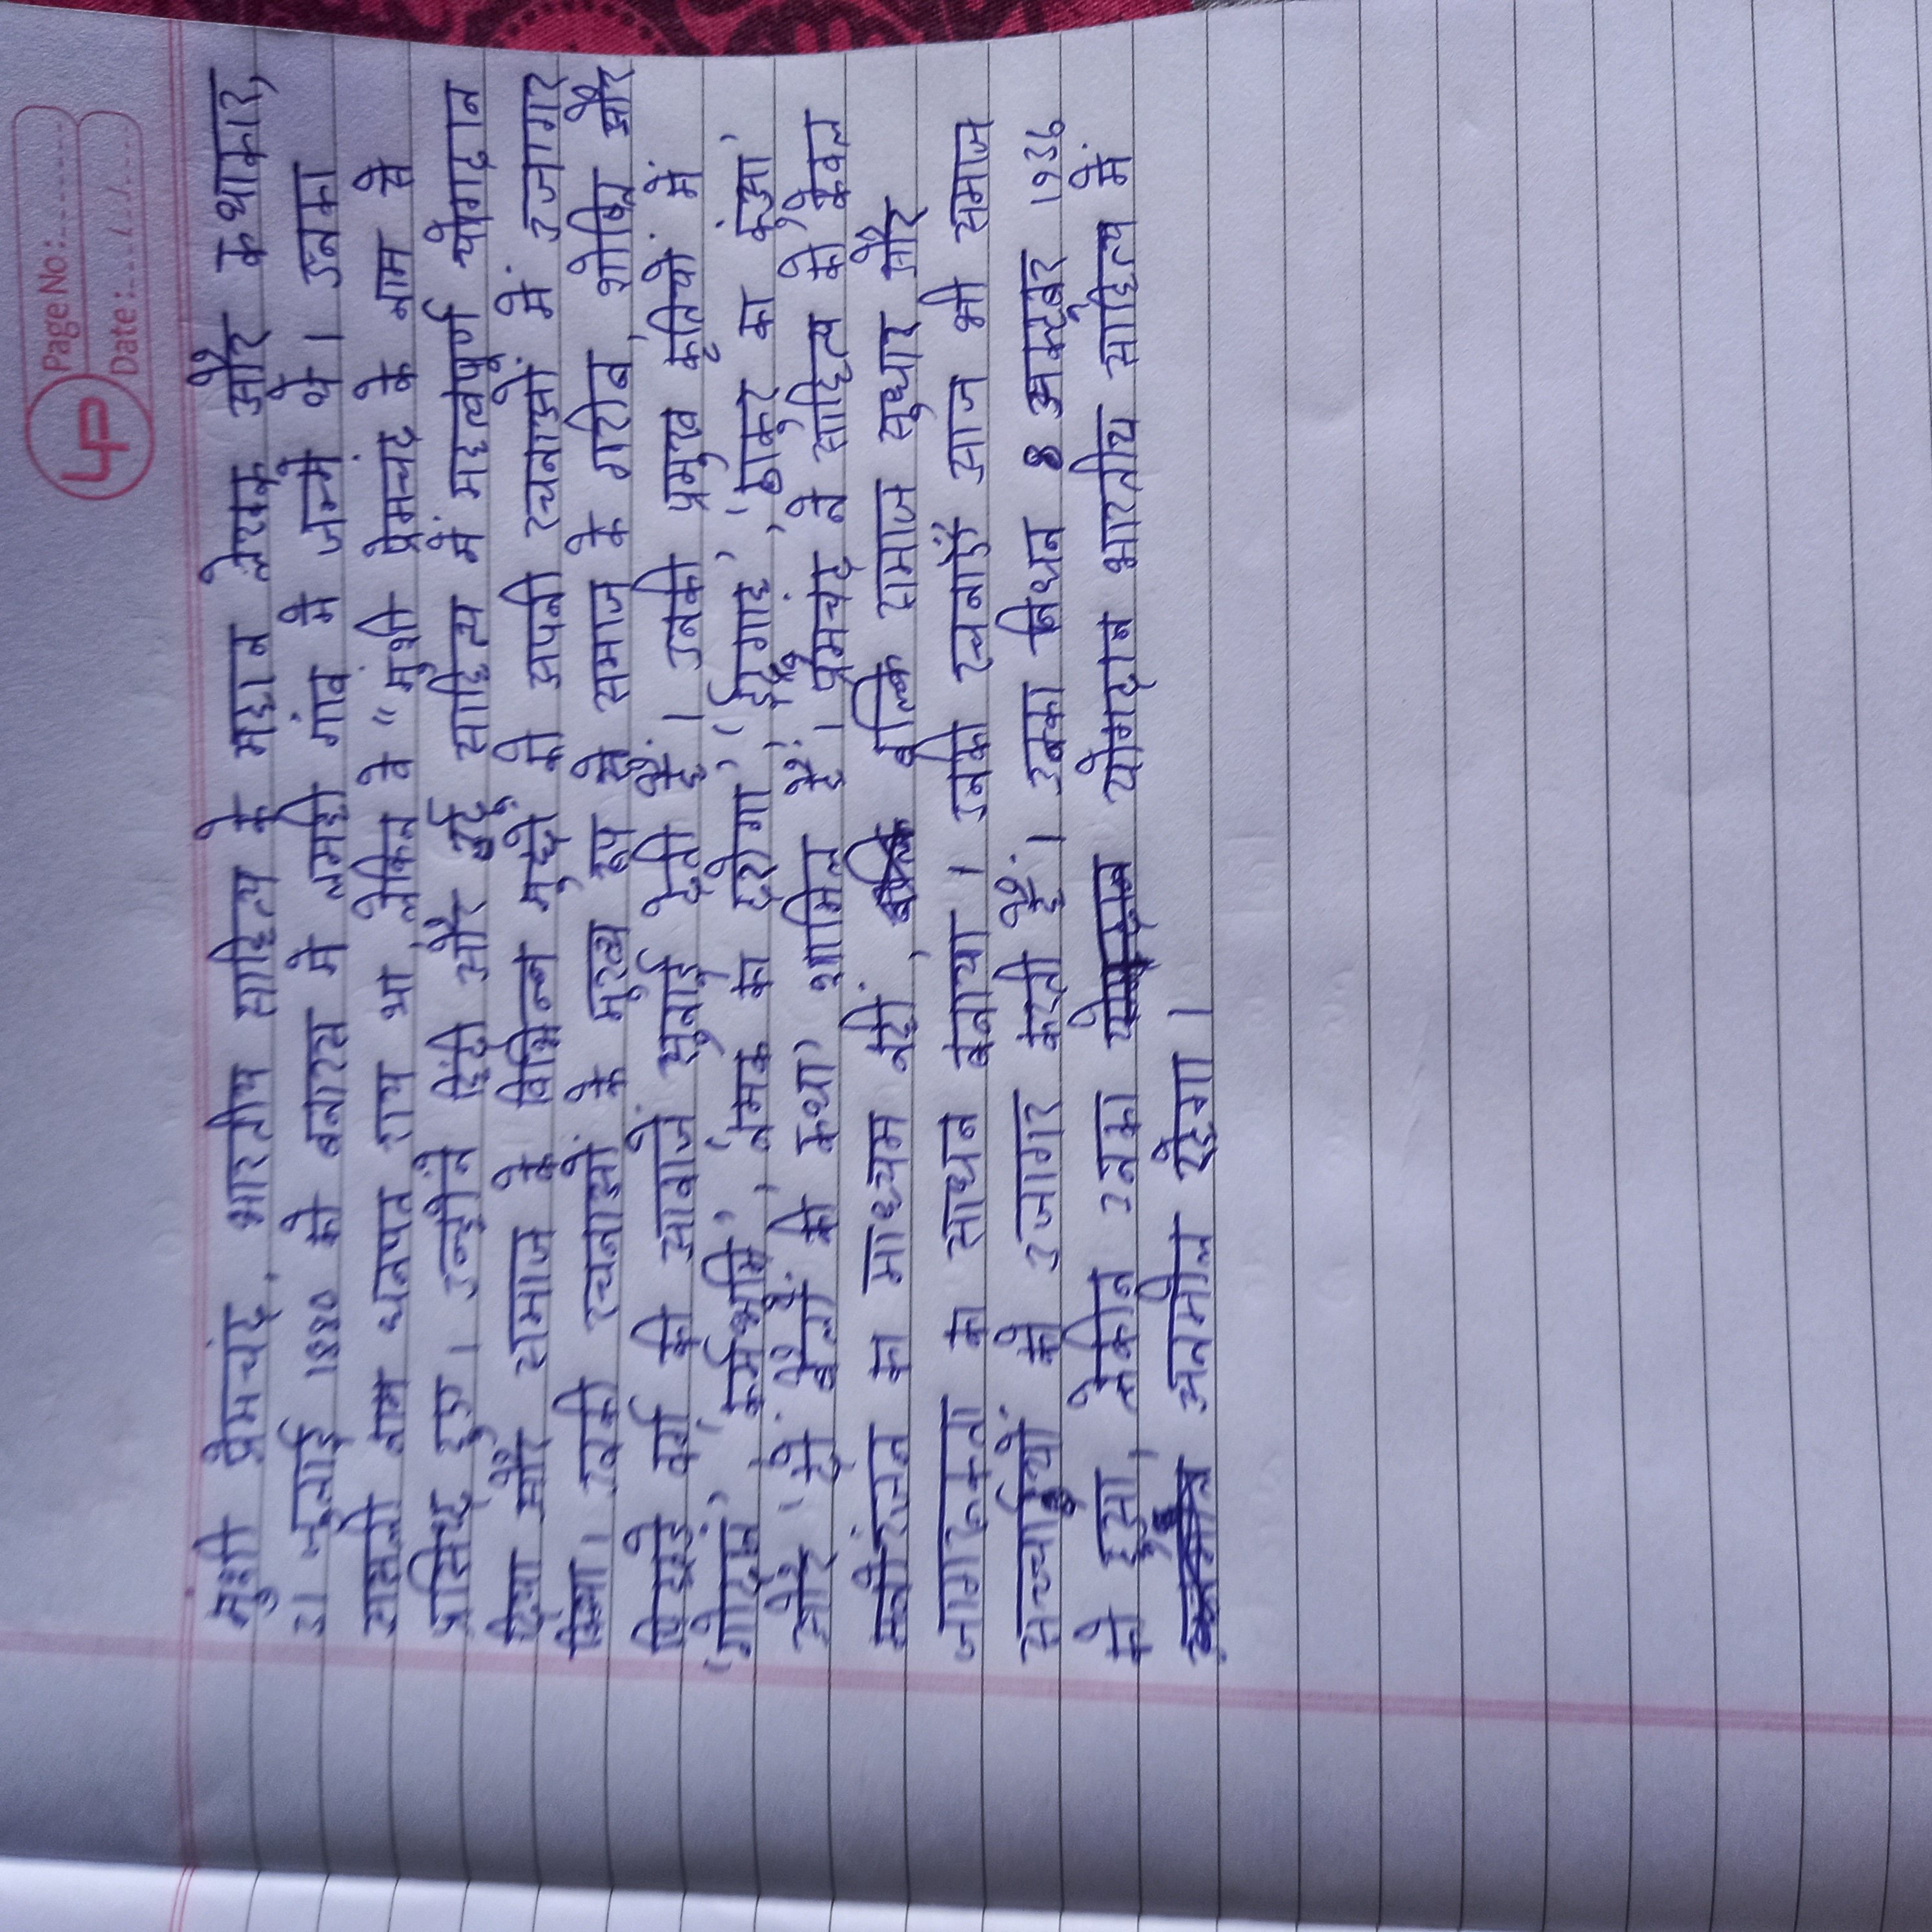 LP
Page No:
Date:
मुंशी प्रेमचंद, भारतीय साहित्य के महान लेखक और कथाकार,
31 जुलाई 1880 को बनारस में लमही गांव में जन्मे थे। उनका
असली नाम धनपत राय था, लेकिन वे "मुंशी प्रेमचंद के नाम से
प्रसिद्ध हुए। उन्होंने हिंदी और उर्दू साहित्य में महत्वपूर्ण योगदान
दिया और समाज के विभिन्न मुद्दो को अपनी रचनाओं में उजागर
किया। उनकी रचनाओं के मुख्य रूप से समाज के गरीब, शोषित और
पिछड़े वर्ग की आवाजें सुनाई देती हैं। उनकी प्रमुख कृतियों में
'गोदान', 'कर्मभूमि', 'नमक का दरोगा', 'ईदगाह', 'ठाकुर का कुंआ'
और 'दो बैलों की कथा' शामिल हैं। प्रेमचंद ने साहित्य को केवल
मनोरंजन का माध्यम नहीं, बल्कि समाज सुधार और
जागरूकता का साधन बनाया। उनकी रचनाएँ आज भी समाज
सच्चाईयों को उजागर करती हैं। उनका निधन 8 अक्टूबर 1936
में हुआ, लेकीन उनका योगदान भारतीय साहित्य में
अनमोल रहेगा।